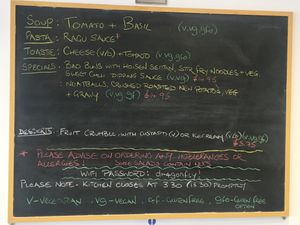 SOUP: TOMATO + BASIL (v.vg.gfo)
PASTA: RAGU SAUCE
TOASTIE: CHEESE (v/vg) + TOMATO (v.vg.gfo)
SPECIALS: - BAO BUNS WITH HOISIN SEITAN, STIR FRY NOODLES + VEG,
SWEET CHILI DIPPING SAUCE (v.vg)
- N'EATBALLS, CRUSHED ROASTED NEW POTATOES, VEG
+ GRAVY (v.vg.gf)
DESSERTS: FRUIT CRUMBLE WITH CUSTARD (v) OR ICE CREAM (v.vg.gf)
$5.75
* PLEASE ADVISE ON ORDERING ANY INTOLERANCES OR
ALLERGIES! SOME SALADS CONTAIN NUTS
WIFI PASSWORD: dragonfly1
PLEASE NOTE - KITCHEN CLOSES AT 3:30 (15:30) PROMPTLY
V - VEGETARIAN . vg - VEGAN . G.F - GLUTEN FREE . gfo - GLUTEN FREE
OPTION